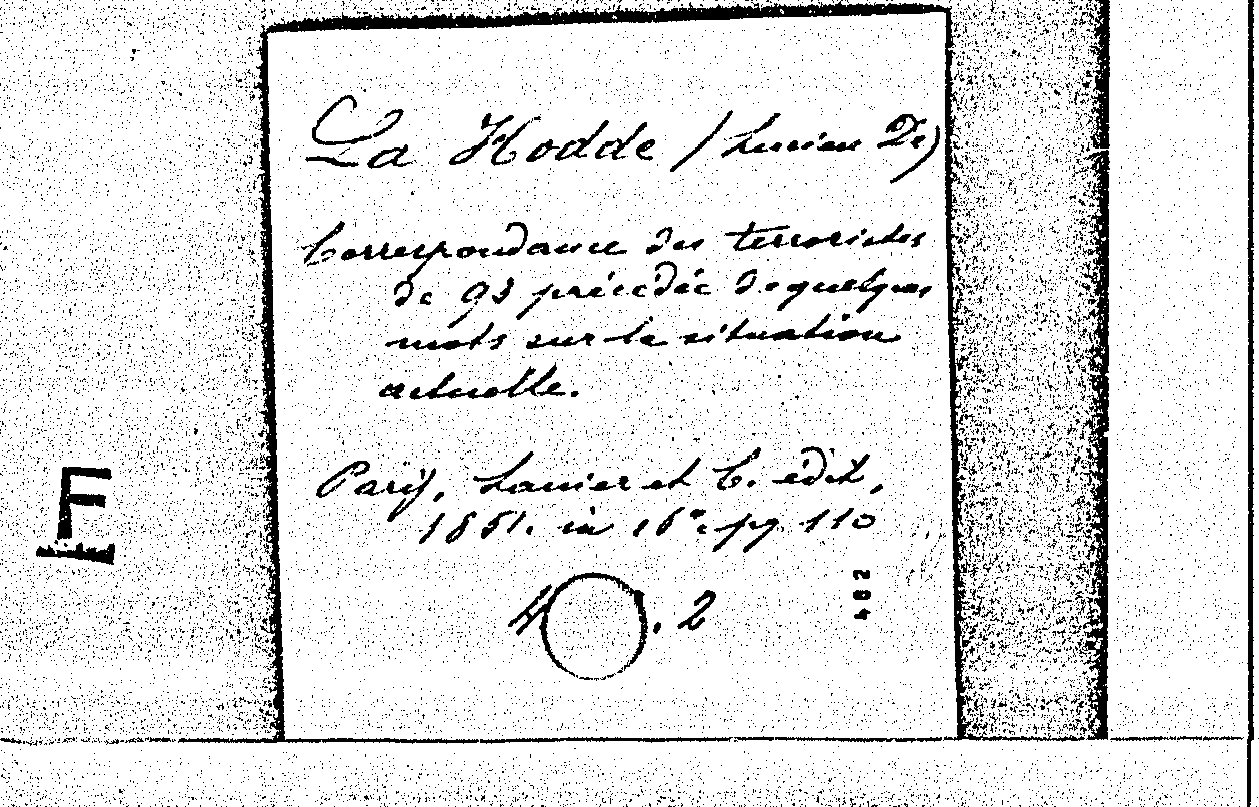 La Hodde (Lucien De)
Correspondance des terroristes
de 93 précédée de quelques
mots sur la situation
actuelle.
Paris, Lanier et C. édit,
1851. in 16°. pg 110
4 . 2
402
E